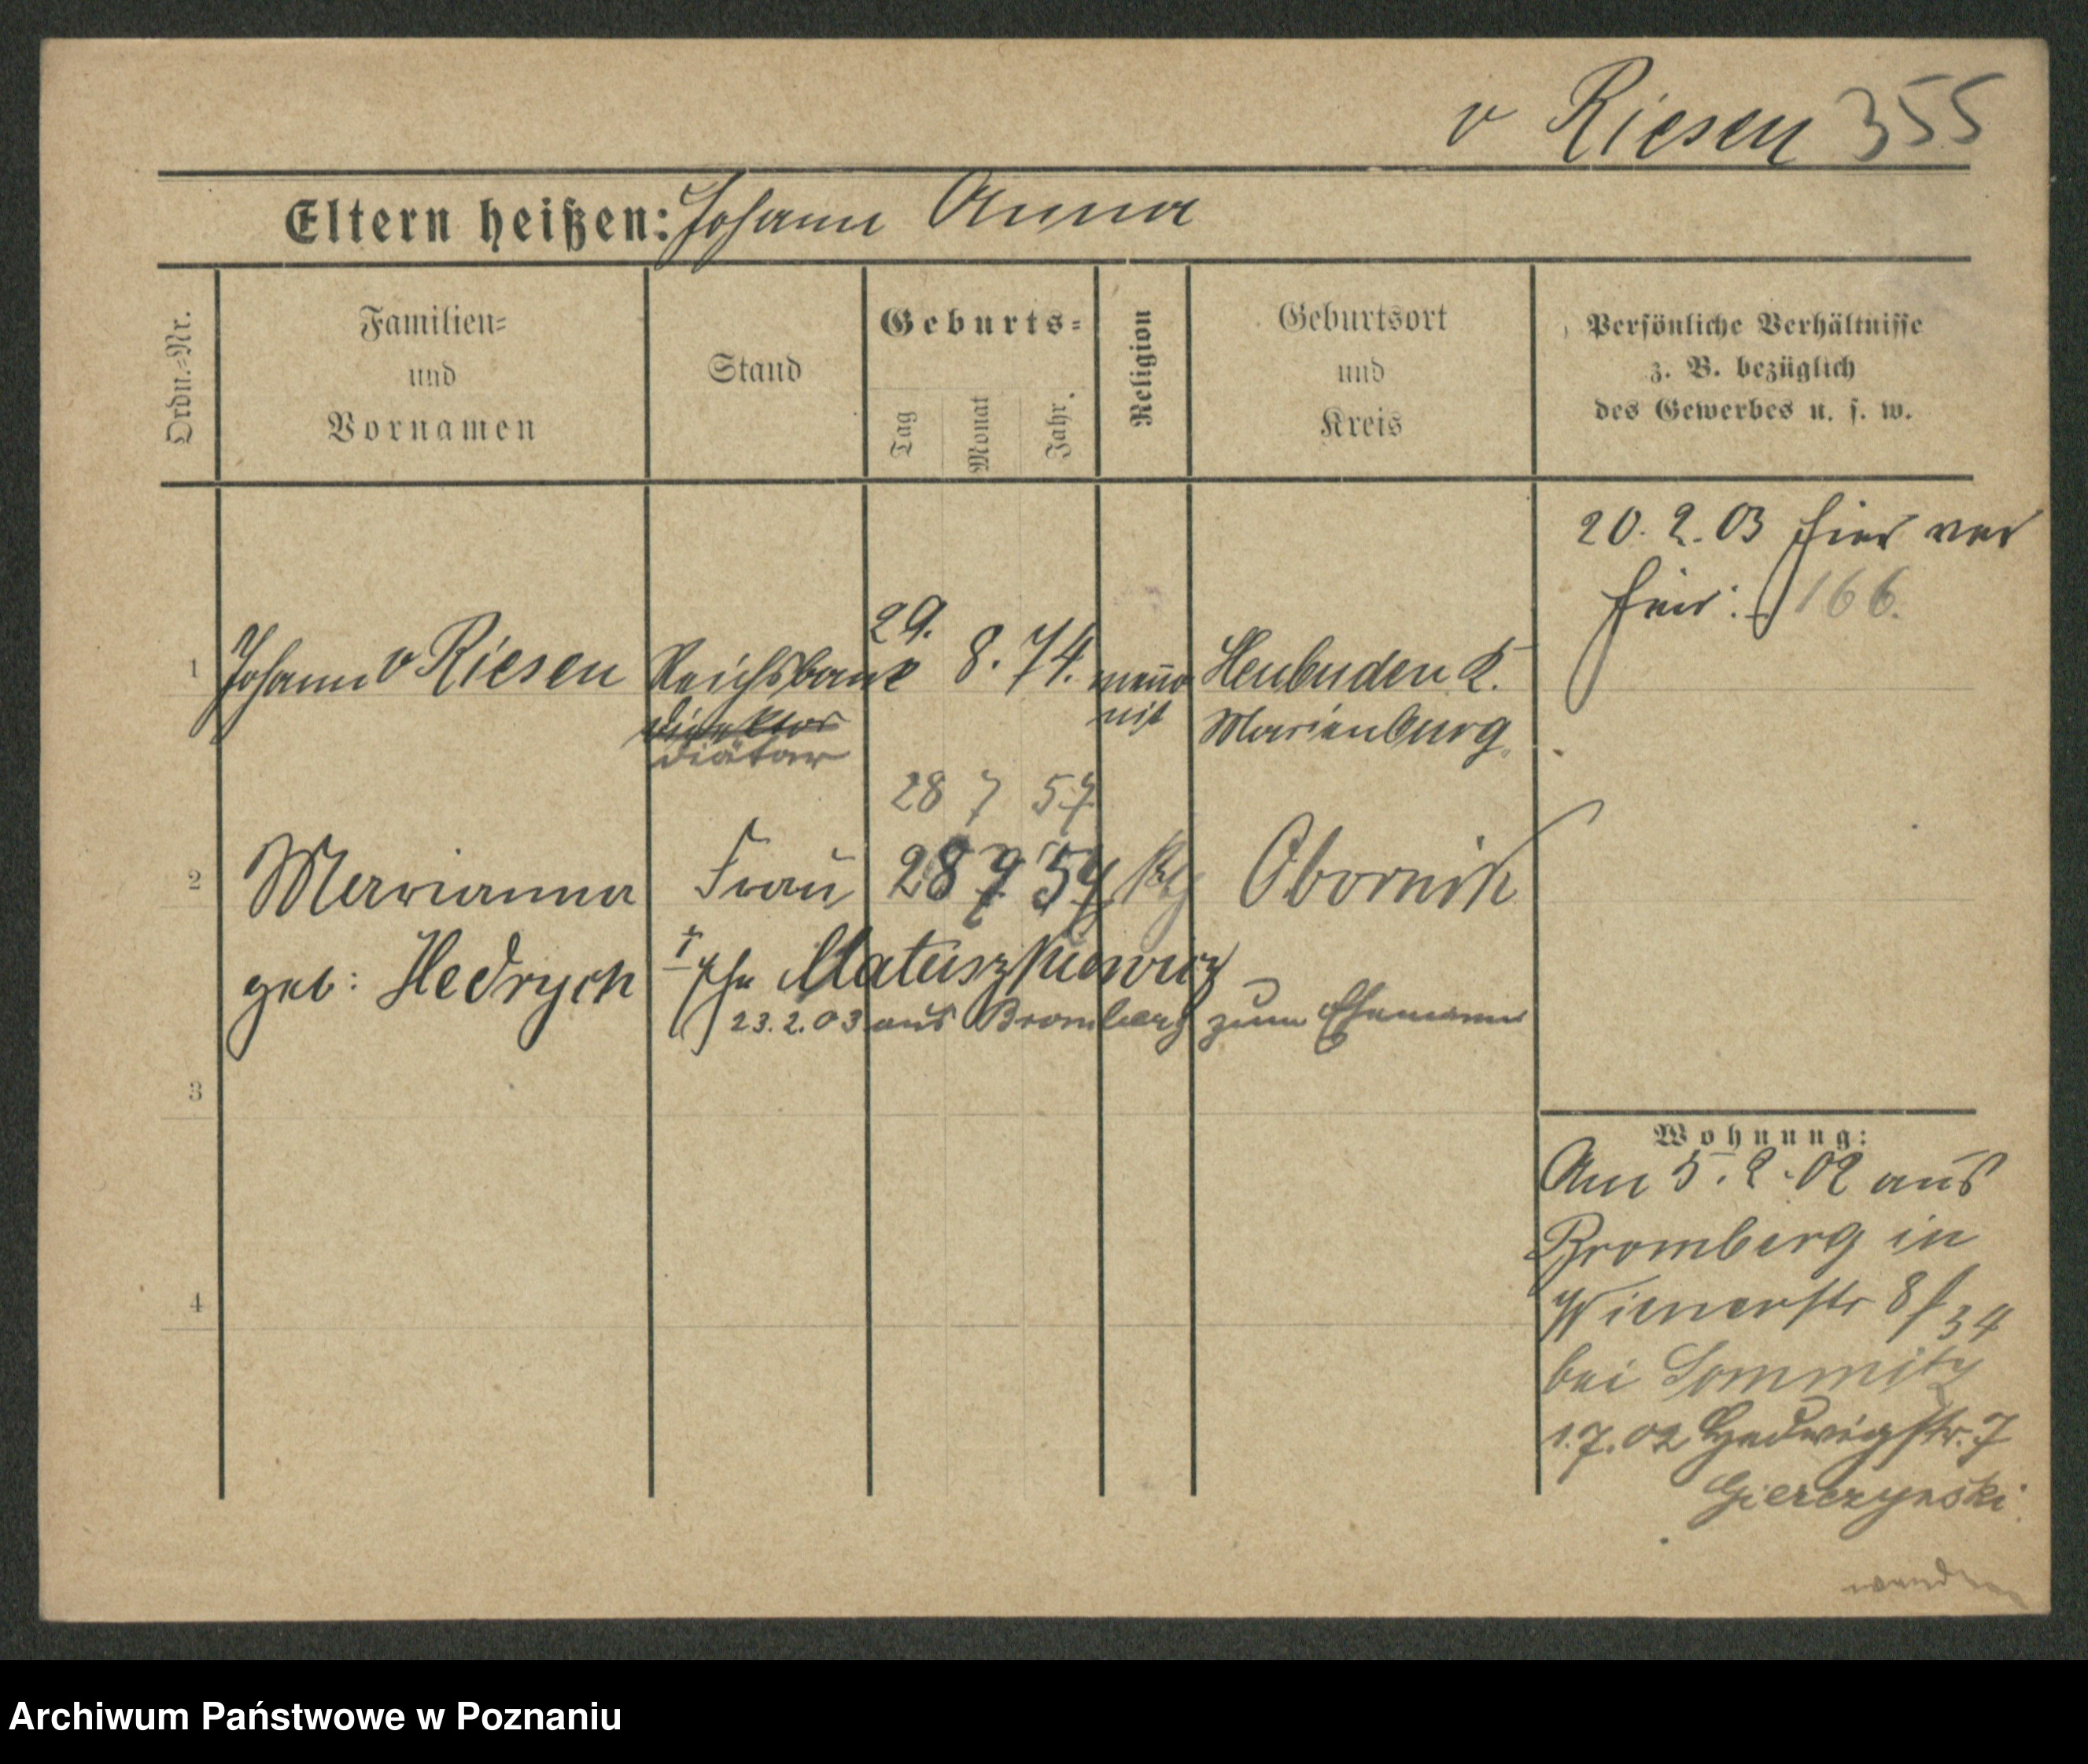 v Riesen 355
Eltern heißen: Johann Anna
Ordn.=Nr.
Familien=
und
Vornamen
Stand
Geburts=
Tag
Monat
Jahr.
Religion
Geburtsort
und
Kreis
Persönliche Verhältnisse
z. B. bezüglich
des Gewerbes u. s. w.
20. 2. 03 hier ver
heir: 166.
1 Johann v Riesen Reichsbank 29. 8. 74. menno Heubuden K.
direktor nist Marienburg
diätar
28 7 57
2 Marianna Frau 28 7 57 kth Obornik
geb: Hedrych I Ehe Matuszkiewicz
23. 2. 03 aus Bromberg zum Ehemann
3
4
Wohnung:
Am 5. 2. 02 aus
Bromberg in
Wienerstr 8 34
bei Sommitz
1. 7. 02 Hedwigstr. 7
Gierczynski
wenden
Archiwum Państwowe w Poznaniu